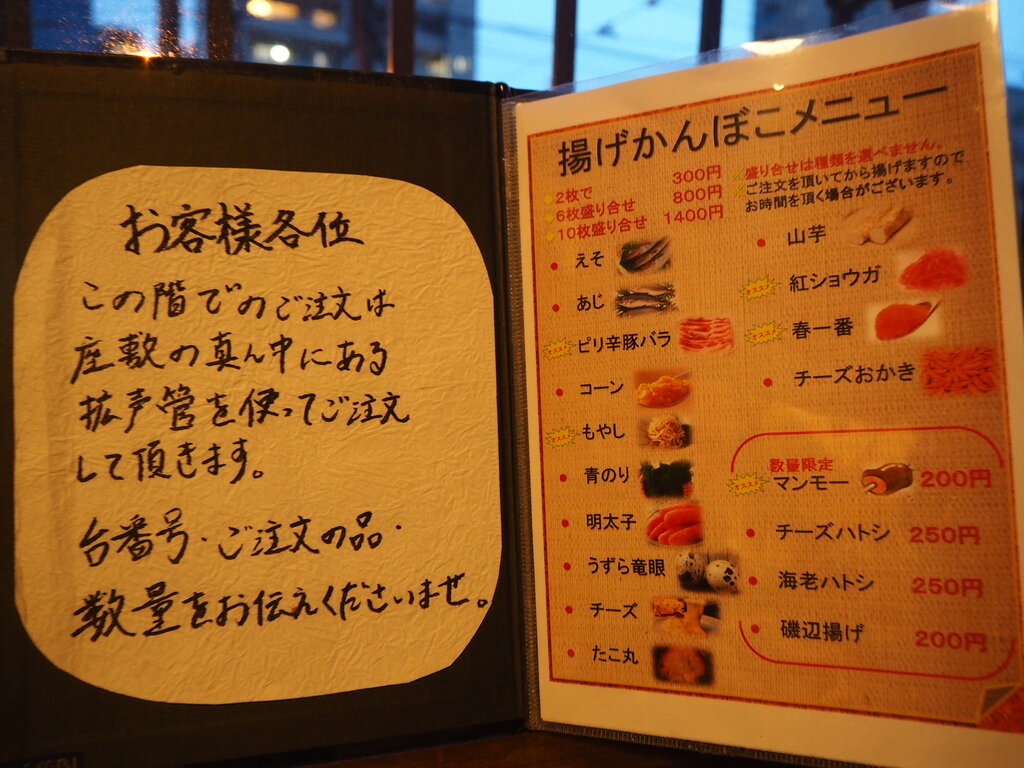 お客様各位
この階でのご注文は
座敷の真ん中にある
拡声管を使ってご注文
して頂きます。
台番号・ご注文の品・
数量をお伝えくださいませ。
揚げかんぼこメニュー
2枚で 300円
6枚盛り合せ 800円
10枚盛り合せ 1400円
※盛り合せは種類を選べません。
ご注文を頂いてから揚げますので
お時間を頂く場合がございます。
えそ
あじ
オススメ ピリ辛豚バラ
コーン
オススメ もやし
青のり
明太子
うずら竜眼
チーズ
たこ丸
山芋
オススメ 紅ショウガ
オススメ 春一番
チーズおかき
数量限定
オススメ マンモー 200円
チーズハトシ 250円
海老ハトシ 250円
磯辺揚げ 200円